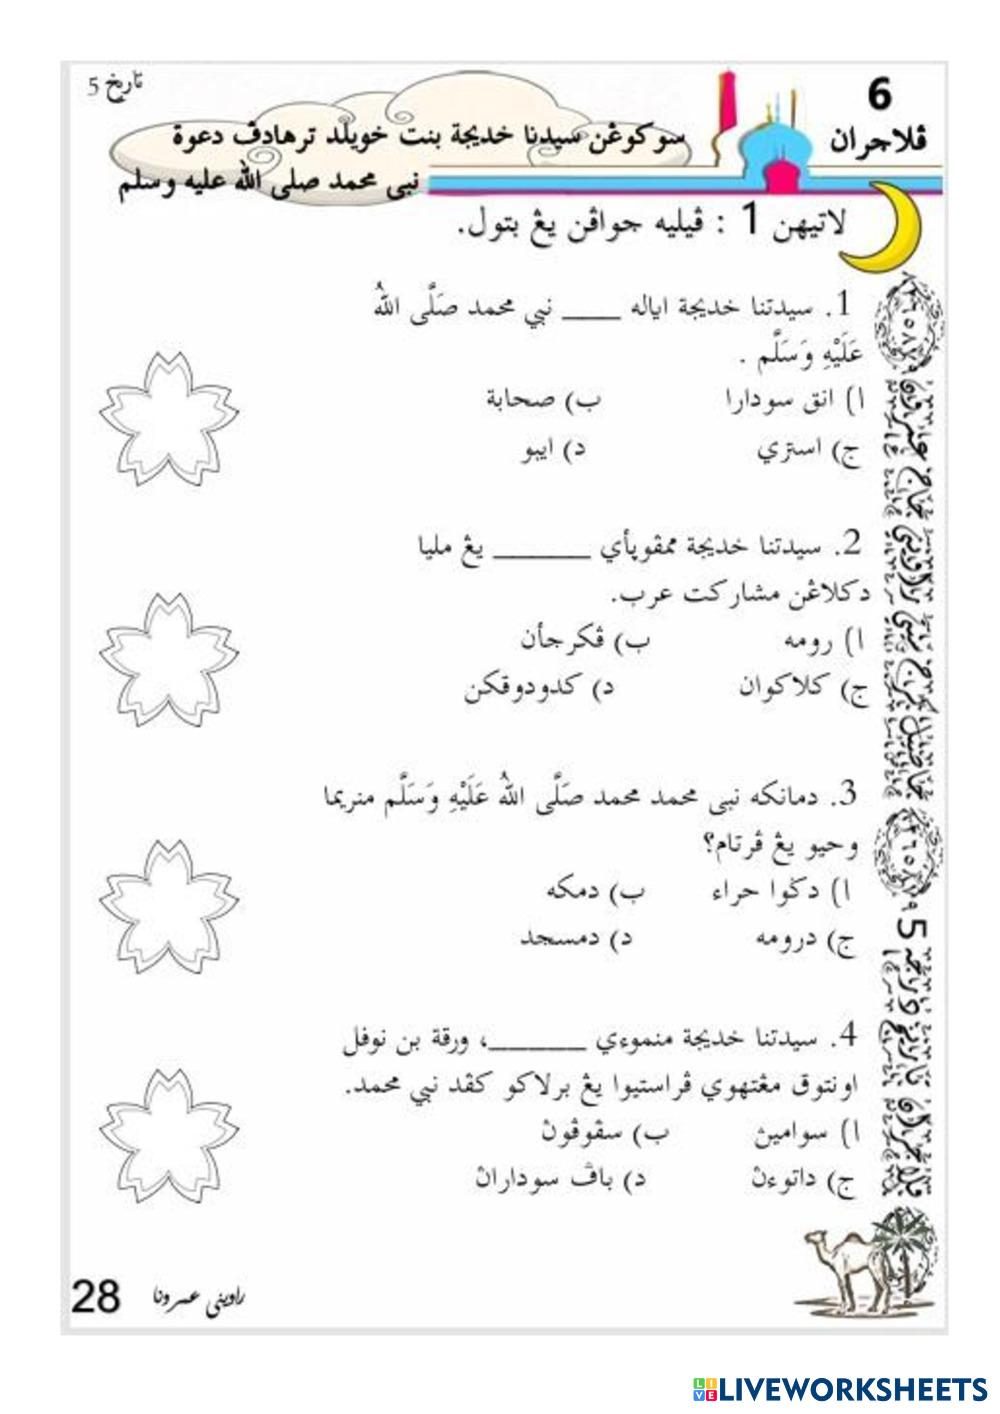 تاريخ 5
6
ڤلاجران
سوكوڠن سيدنا خديجة بنت خويلد ترهادڤ دعوة
نبي محمد صلى الله عليه وسلم
لاتيهن 1 : ڤيليه جواڤن يڠ بتول.
1. سيدتنا خديجة اياله ____ نبي محمد صَلَّى اللهُ
عَلَيْهِ وَسَلَّم .
ا) انق سودارا ب) صحابة
ج) استري د) ايبو
2. سيدتنا خديجة ممڤوڽأي _______ يڠ مليا
دكلاڠن مشاركت عرب.
ا) رومه ب) ڤكرجأن
ج) كلاكوان د) كدودوقكن
3. دمانكه نبى محمد محمد صَلَّى اللهُ عَلَيْهِ وَسَلَّم منريما
وحيو يڠ ڤرتام؟
ا) دݢوا حراء ب) دمكه
ج) درومه د) دمسجد
4. سيدتنا خديجة منموءي _______، ورقة بن نوفل
اونتوق مڠتهوي ڤراستيوا يڠ برلاكو كڤد نبي محمد.
ا) سوامين ب) سڤوڤون
ج) داتوءن د) باڤ سوداران
5
28
راويني عمرونا
LIVEWORKSHEETS